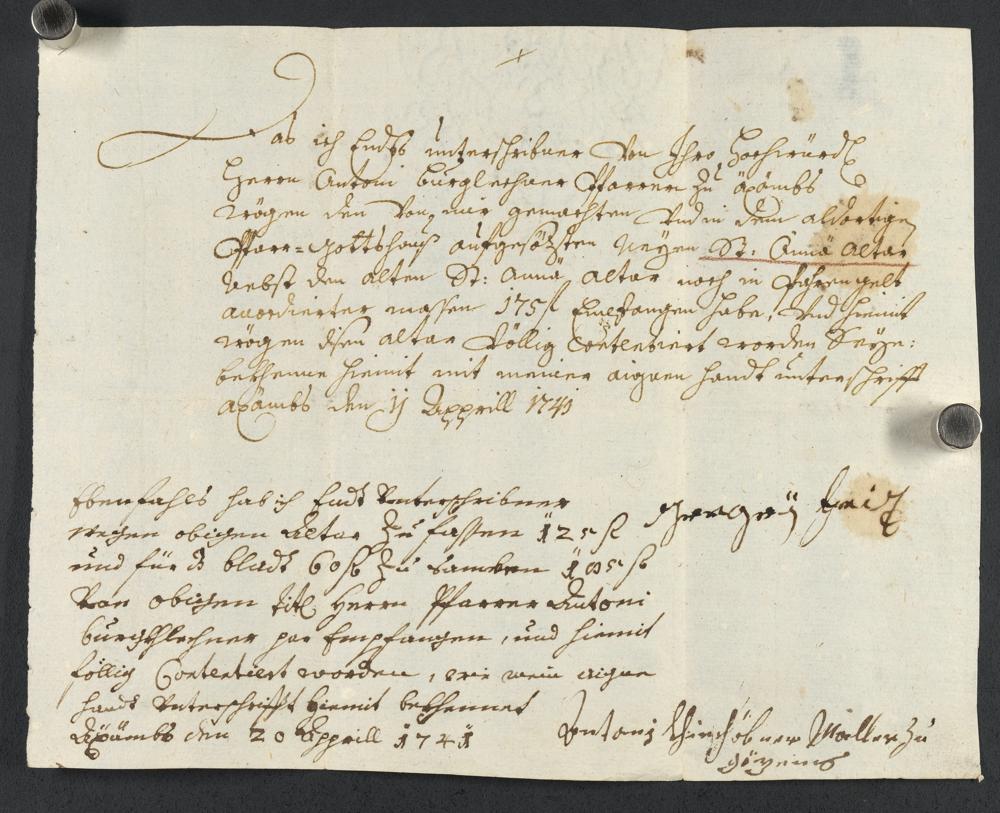 Das ich Endts unterschribner Von Ihro Hochwürd
Herrn Antoni Burglechner Pfarrern zu Axämbs
wögen den Von mir gemachten Und in dem aldortigen
Pfarr=gottshauß aufgesözten Neyen St: Annä Altar
Nebst den alten St: Annä altar noch in Pahren gelt
accordierter massen 175 f Empfangen habe, Und hiemit
wögen disen altar Völlig Contentiert worden Seye:
bekhenne hiemit mit meiner aignen handt unterschrifft
axämbs den 11 Apprill 1741
Ebenfahls hab ich Endt Unterschribner
wegen obigen Altar Zu fassen 125 f
und für ds bladt 60 f Zu samben 185 f
Von obigen Titl: Herrn Pfarrer Antoni
burgkhlechner par Empfangen, und hiemit
föllig Contentiert worden, wie mein aigne
handt Unterschrifft hiemit bekhennet
Axämbs den 20 Apprill 1741
Antoni Kirchöbner Maller Zu
Götzens